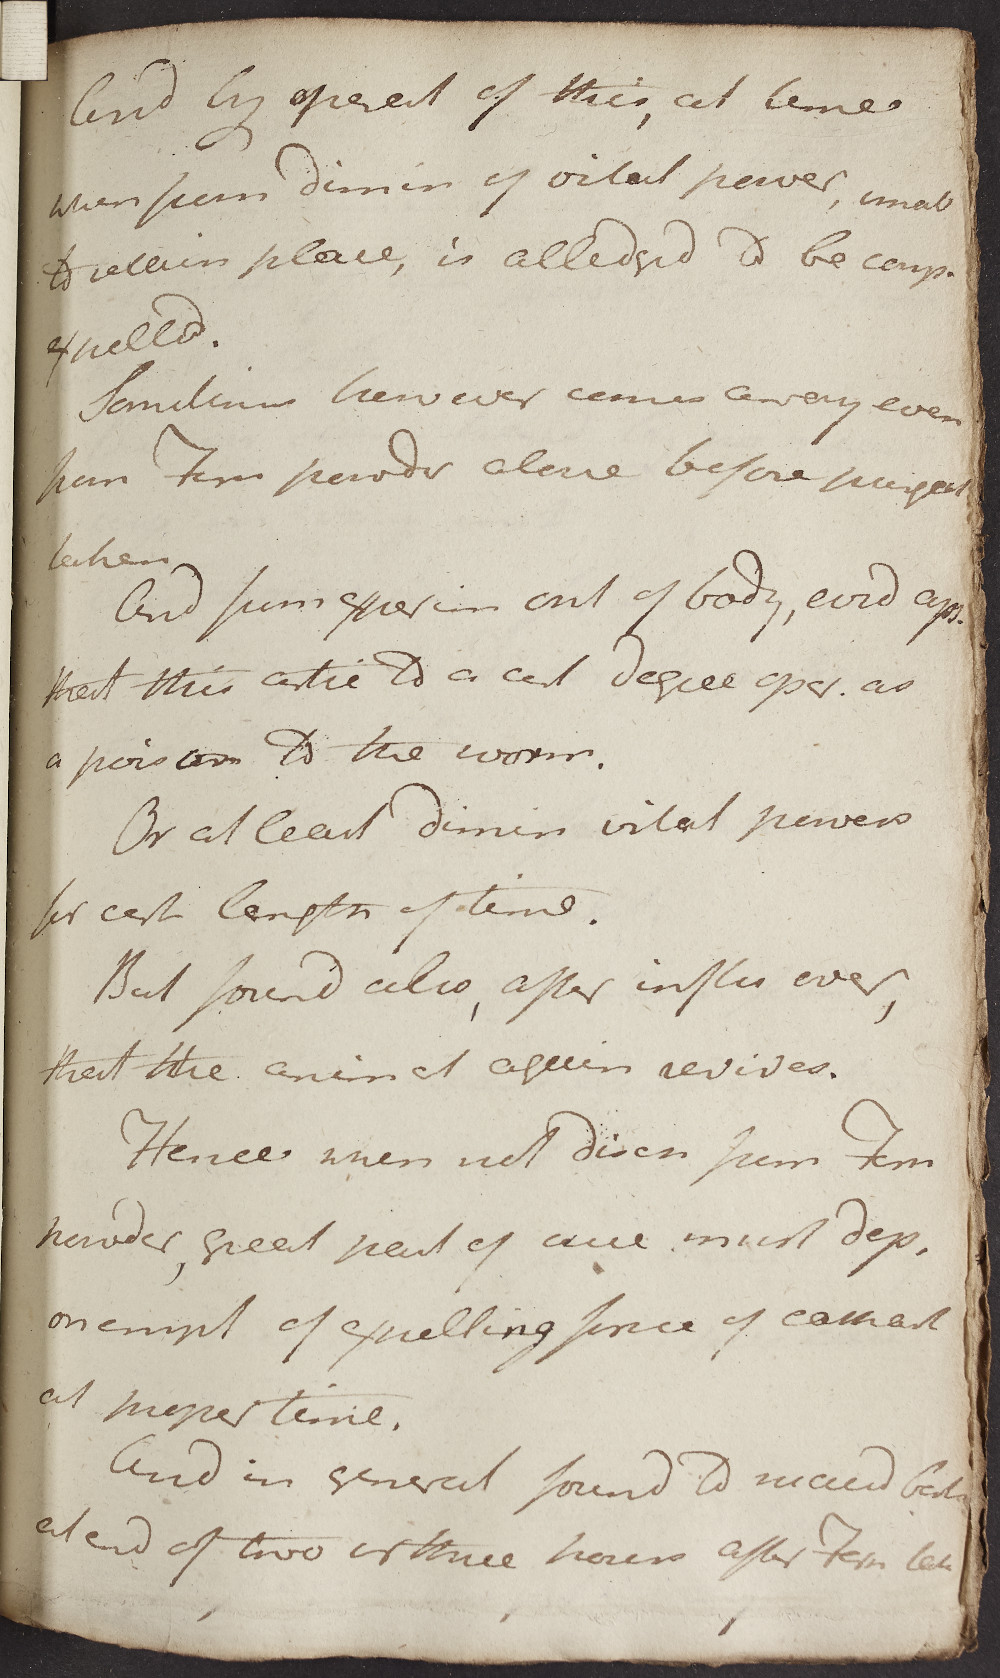 And by operat of this, at time
when from dimin of vital power, unab
to retain place, is alledged to be comp.
expelld.
Sometimes however comes away even
from Fern powder alone before purgat
taken
And from experim out of body, evid app.
that this artic to a cert degree oper. as
a poison to the worm.
Or at least dimin vital powers
for cert length of time.
But found also, after influ over,
that the animal again revives.
Hence when not disen from Fern
powder, great part of cure must dep.
on empt of expelling force of cathart
at proper time.
And in general found to succeed best
at end of two or three hours after Fern tak